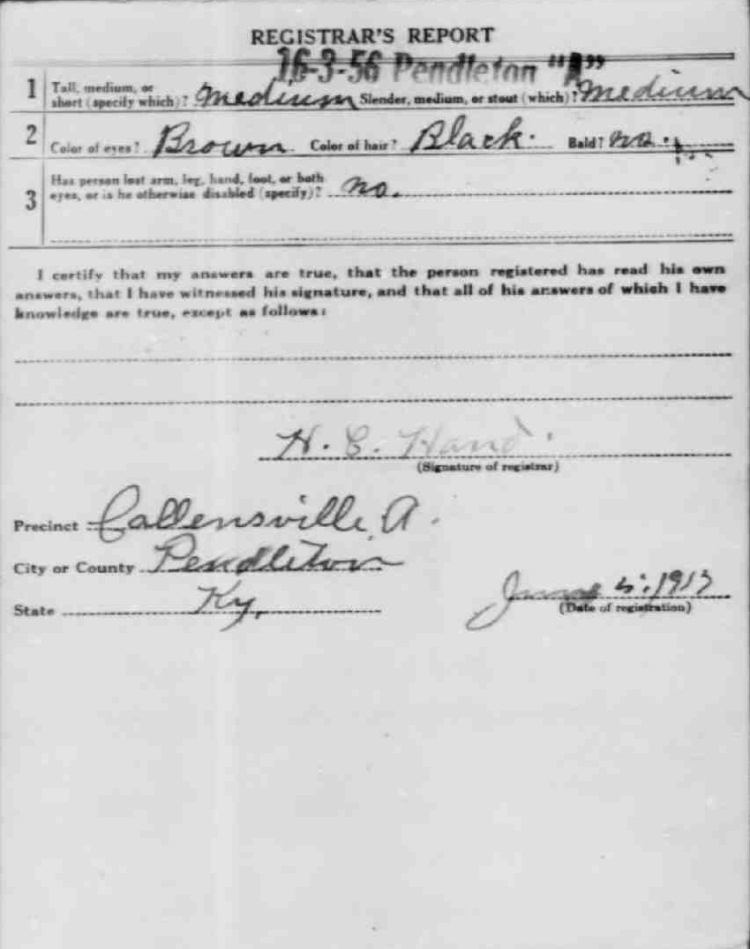 REGISTRAR'S REPORT
16-3-56 Pendleton "A"
1 Tall, medium, or short (specify which)? Medium Slender, medium, or stout (which)? Medium
2 Color of eyes? Brown Color of hair? Black. Bald? no.
3 Has person lost arm, leg, hand, foot, or both
eyes, or is he otherwise disabled (specify)? no.
I certify that my answers are true, that the person registered has read his own
answers, that I have witnessed his signature, and that all of his answers of which I have
knowledge are true, except as follows:
H. C. Hand.
(Signature of registrar)
Precinct Callensville A.
City or County Pendleton
State Ky, June 5. 1917
(Date of registration)